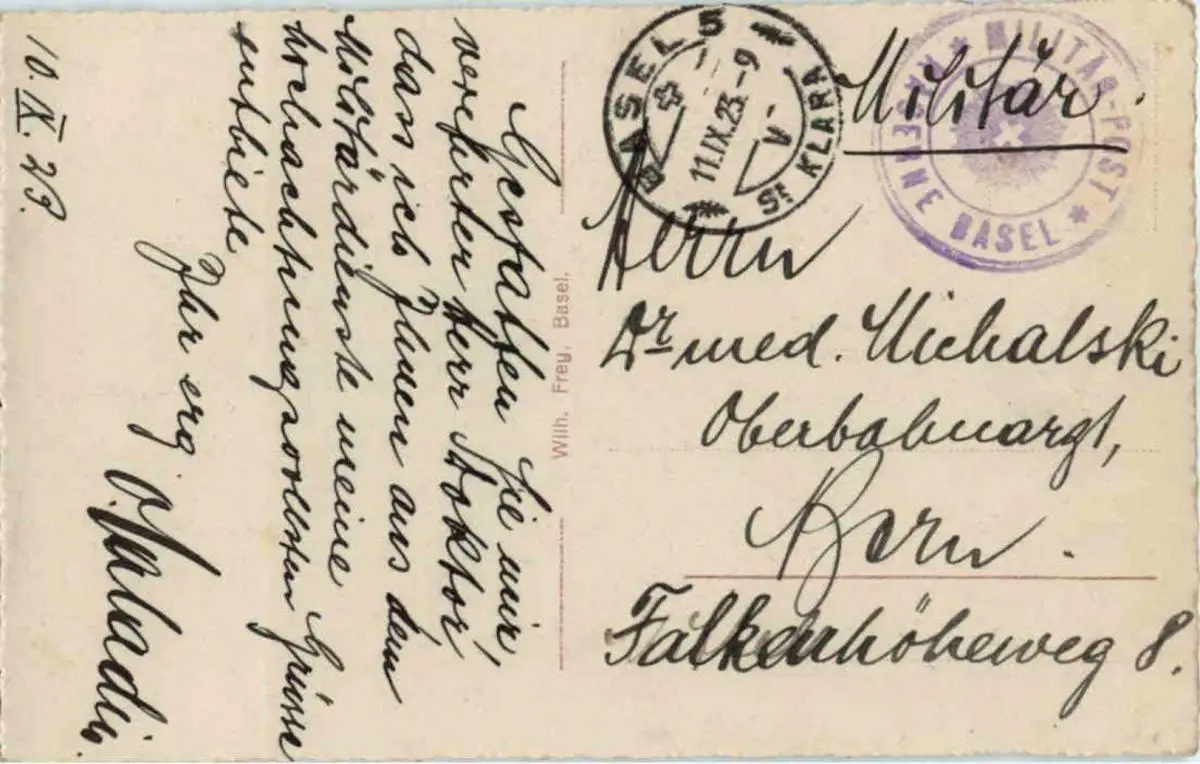 10. IX. 23.
Gestatten Sie mir,
verehrter Herr Doktor,
dass ich Ihnen aus dem
Militärdienste meine
hochachtungsvollsten Grüsse
entbiete
Ihr erg.
Wilh. Frey, Basel.
BASEL 5
11.IX.23.-9
V-
St KLARA
MILITÄR-POST
KASERNE BASEL
Militär.
Herrn
Dr med. Michalski
Oberbahnarzt,
Bern.
Falkenhöheweg 8.